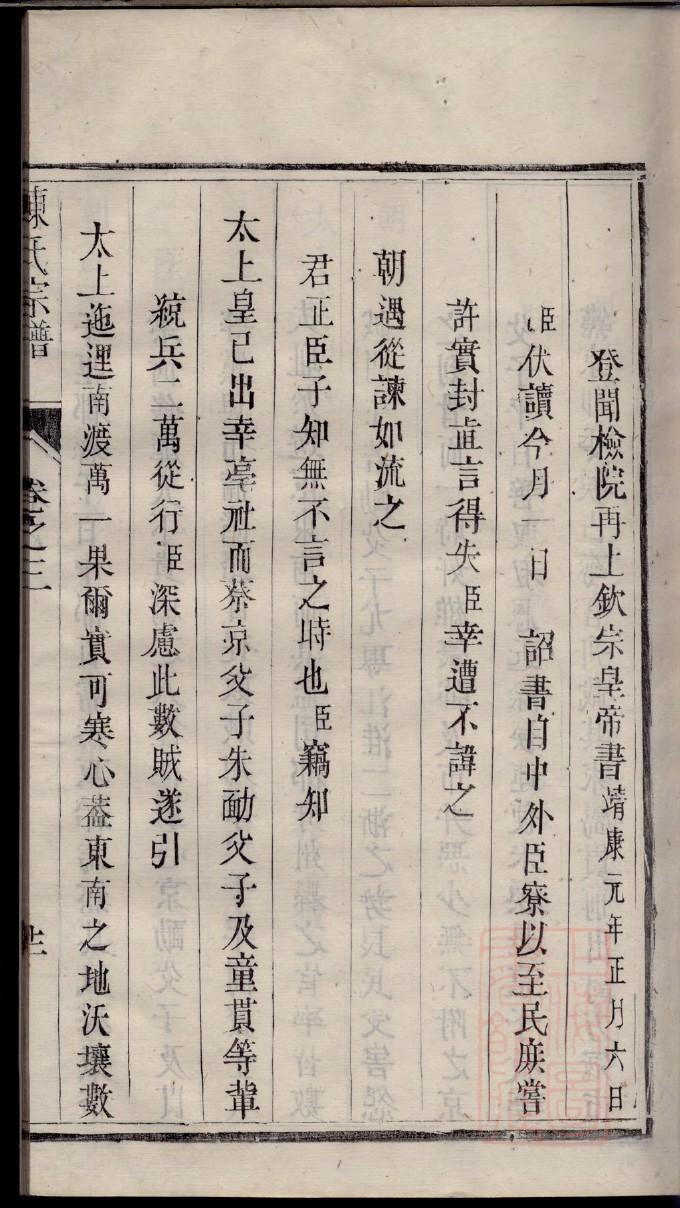 登聞檢院再上欽宗皇帝書靖康元年正月六日
臣伏讀今月一日　詔書自中外臣寮以至民庶嘗
許實封直言得失臣幸遭不諱之
朝遇從諫如流之
君正臣子知無不言之時也臣竊知
太上皇已出幸亳社而蔡京父子朱勔父子及童貫等輩
統兵二萬從行臣深慮此數賊遂引
太上迤逦南渡萬一果爾實可寒心葢東南之地沃壤數
陳氏宗譜
卷之三